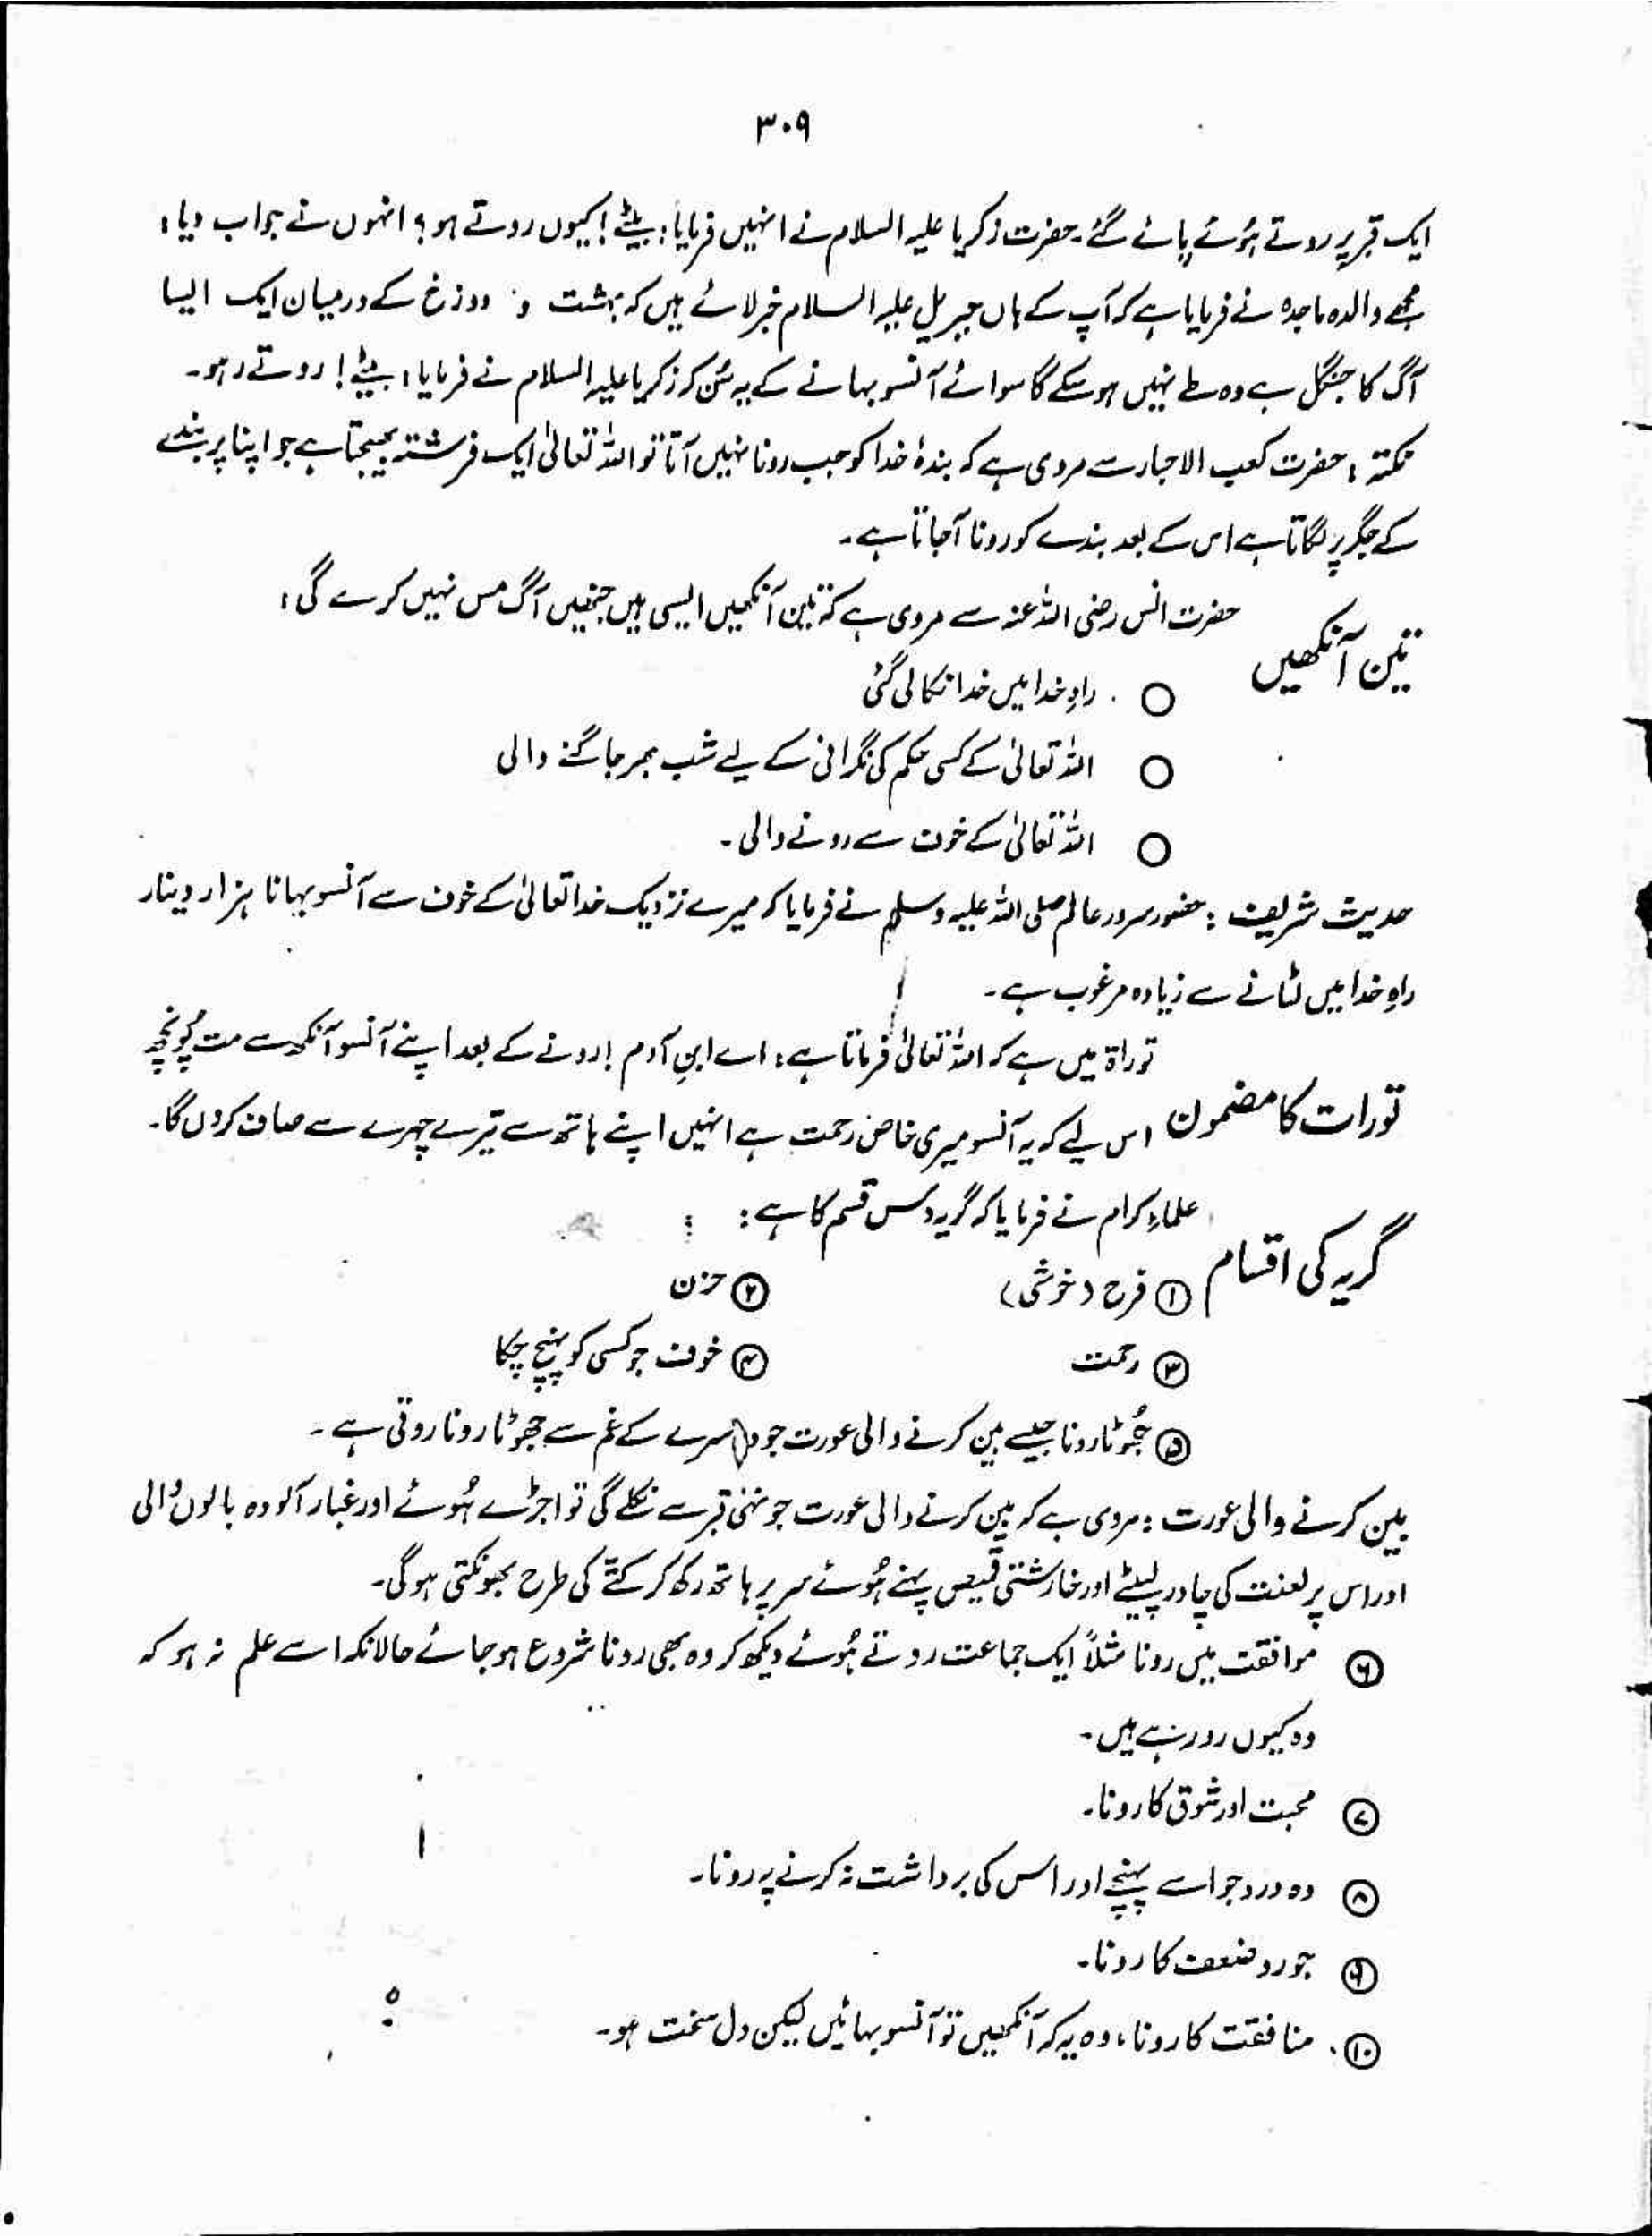 ۳۰۹
ایک قبر پر روتے ہُوئے پائے گئے۔ حضرت زکریا علیہ السلام نے انہیں فرمایا: بیٹے! کیوں روتے ہو؟ انہوں نے جواب دیا:
مجھے والدہ ماجدہ نے فرمایا ہے کہ آپ کے ہاں جبریل علیہ السلام خبر لائے ہیں کہ بہشت و دوزخ کے درمیان ایک ایسا
آگ کا جنگل ہے وہ طے نہیں ہو سکے گا سوائے آنسو بہانے کے یہ سُن کر زکریا علیہ السلام نے فرمایا: بیٹے! روتے رہو۔
نکتہ : حضرت کعب الاحبار سے مروی ہے کہ بندۂ خدا کو جب رونا نہیں آتا تو اللہ تعالیٰ ایک فرشتہ بھیجتا ہے جو اپنا پر بندے
کے جگر پر لگاتا ہے اس کے بعد بندے کو رونا آجاتا ہے۔
تین آنکھیں حضرت انس رضی اللہ عنہ سے مروی ہے کہ تین آنکھیں ایسی ہیں جنھیں آگ مس نہیں کرے گی:
○ راہِ خدا میں خدا نکالی گئی
○ اللہ تعالیٰ کے کسی حکم کی نگرانی کے لیے شب بھر جاگنے والی
○ اللہ تعالیٰ کے خوف سے رونے والی۔
حدیث شریف : حضور سرور عالم صلی اللہ علیہ وسلم نے فرمایا کہ میرے نزدیک خدا تعالیٰ کے خوف سے آنسو بہانا ہزار دینار
راہِ خدا میں لٹانے سے زیادہ مرغوب ہے۔
توراۃ میں ہے کہ اللہ تعالیٰ فرماتا ہے: اے ابنِ آدم! رونے کے بعد اپنے آنسو آنکھ سے مت پُونچھ
تورات کا مضمون اس لیے کہ یہ آنسو میری خاص رحمت ہے انہیں اپنے ہاتھ سے تیرے چہرے سے صاف کر دوں گا۔
علماءِ کرام نے فرمایا کہ گریہ دس قسم کا ہے:
گریہ کی اقسام ① فرح (خوشی) ② حزن
③ رحمت ④ خوف جو کسی کو پہنچ چکا
⑤ جُھوٹا رونا جیسے بین کرنے والی عورت جو دوسرے کے غم سے جھوٹا رونا روتی ہے۔
بین کرنے والی عورت : مروی ہے کہ بین کرنے والی عورت جونہی قبر سے نکلے گی تو اجڑے ہُوئے اور غبار آلودہ بالوں والی
اور اس پر لعنت کی چادر لپیٹے اور خارشتی قمیص پہنے ہُوئے سر پر ہاتھ رکھ کر کتے کی طرح بھونکتی ہوگی۔
⑥ موافقت میں رونا مثلاً ایک جماعت روتے ہُوئے دیکھ کر وہ بھی رونا شروع ہو جائے حالانکہ اسے علم نہ ہو کہ
وہ کیوں رو رہے ہیں۔
⑦ محبت اور شوق کا رونا۔
⑧ وہ درد جو اسے پہنچے اور اس کی برداشت نہ کرنے پہ رونا۔
⑨ جور و ضعف کا رونا۔
⑩ منافقت کا رونا، وہ یہ کہ آنکھیں تو آنسو بہائیں لیکن دل سخت ہو۔